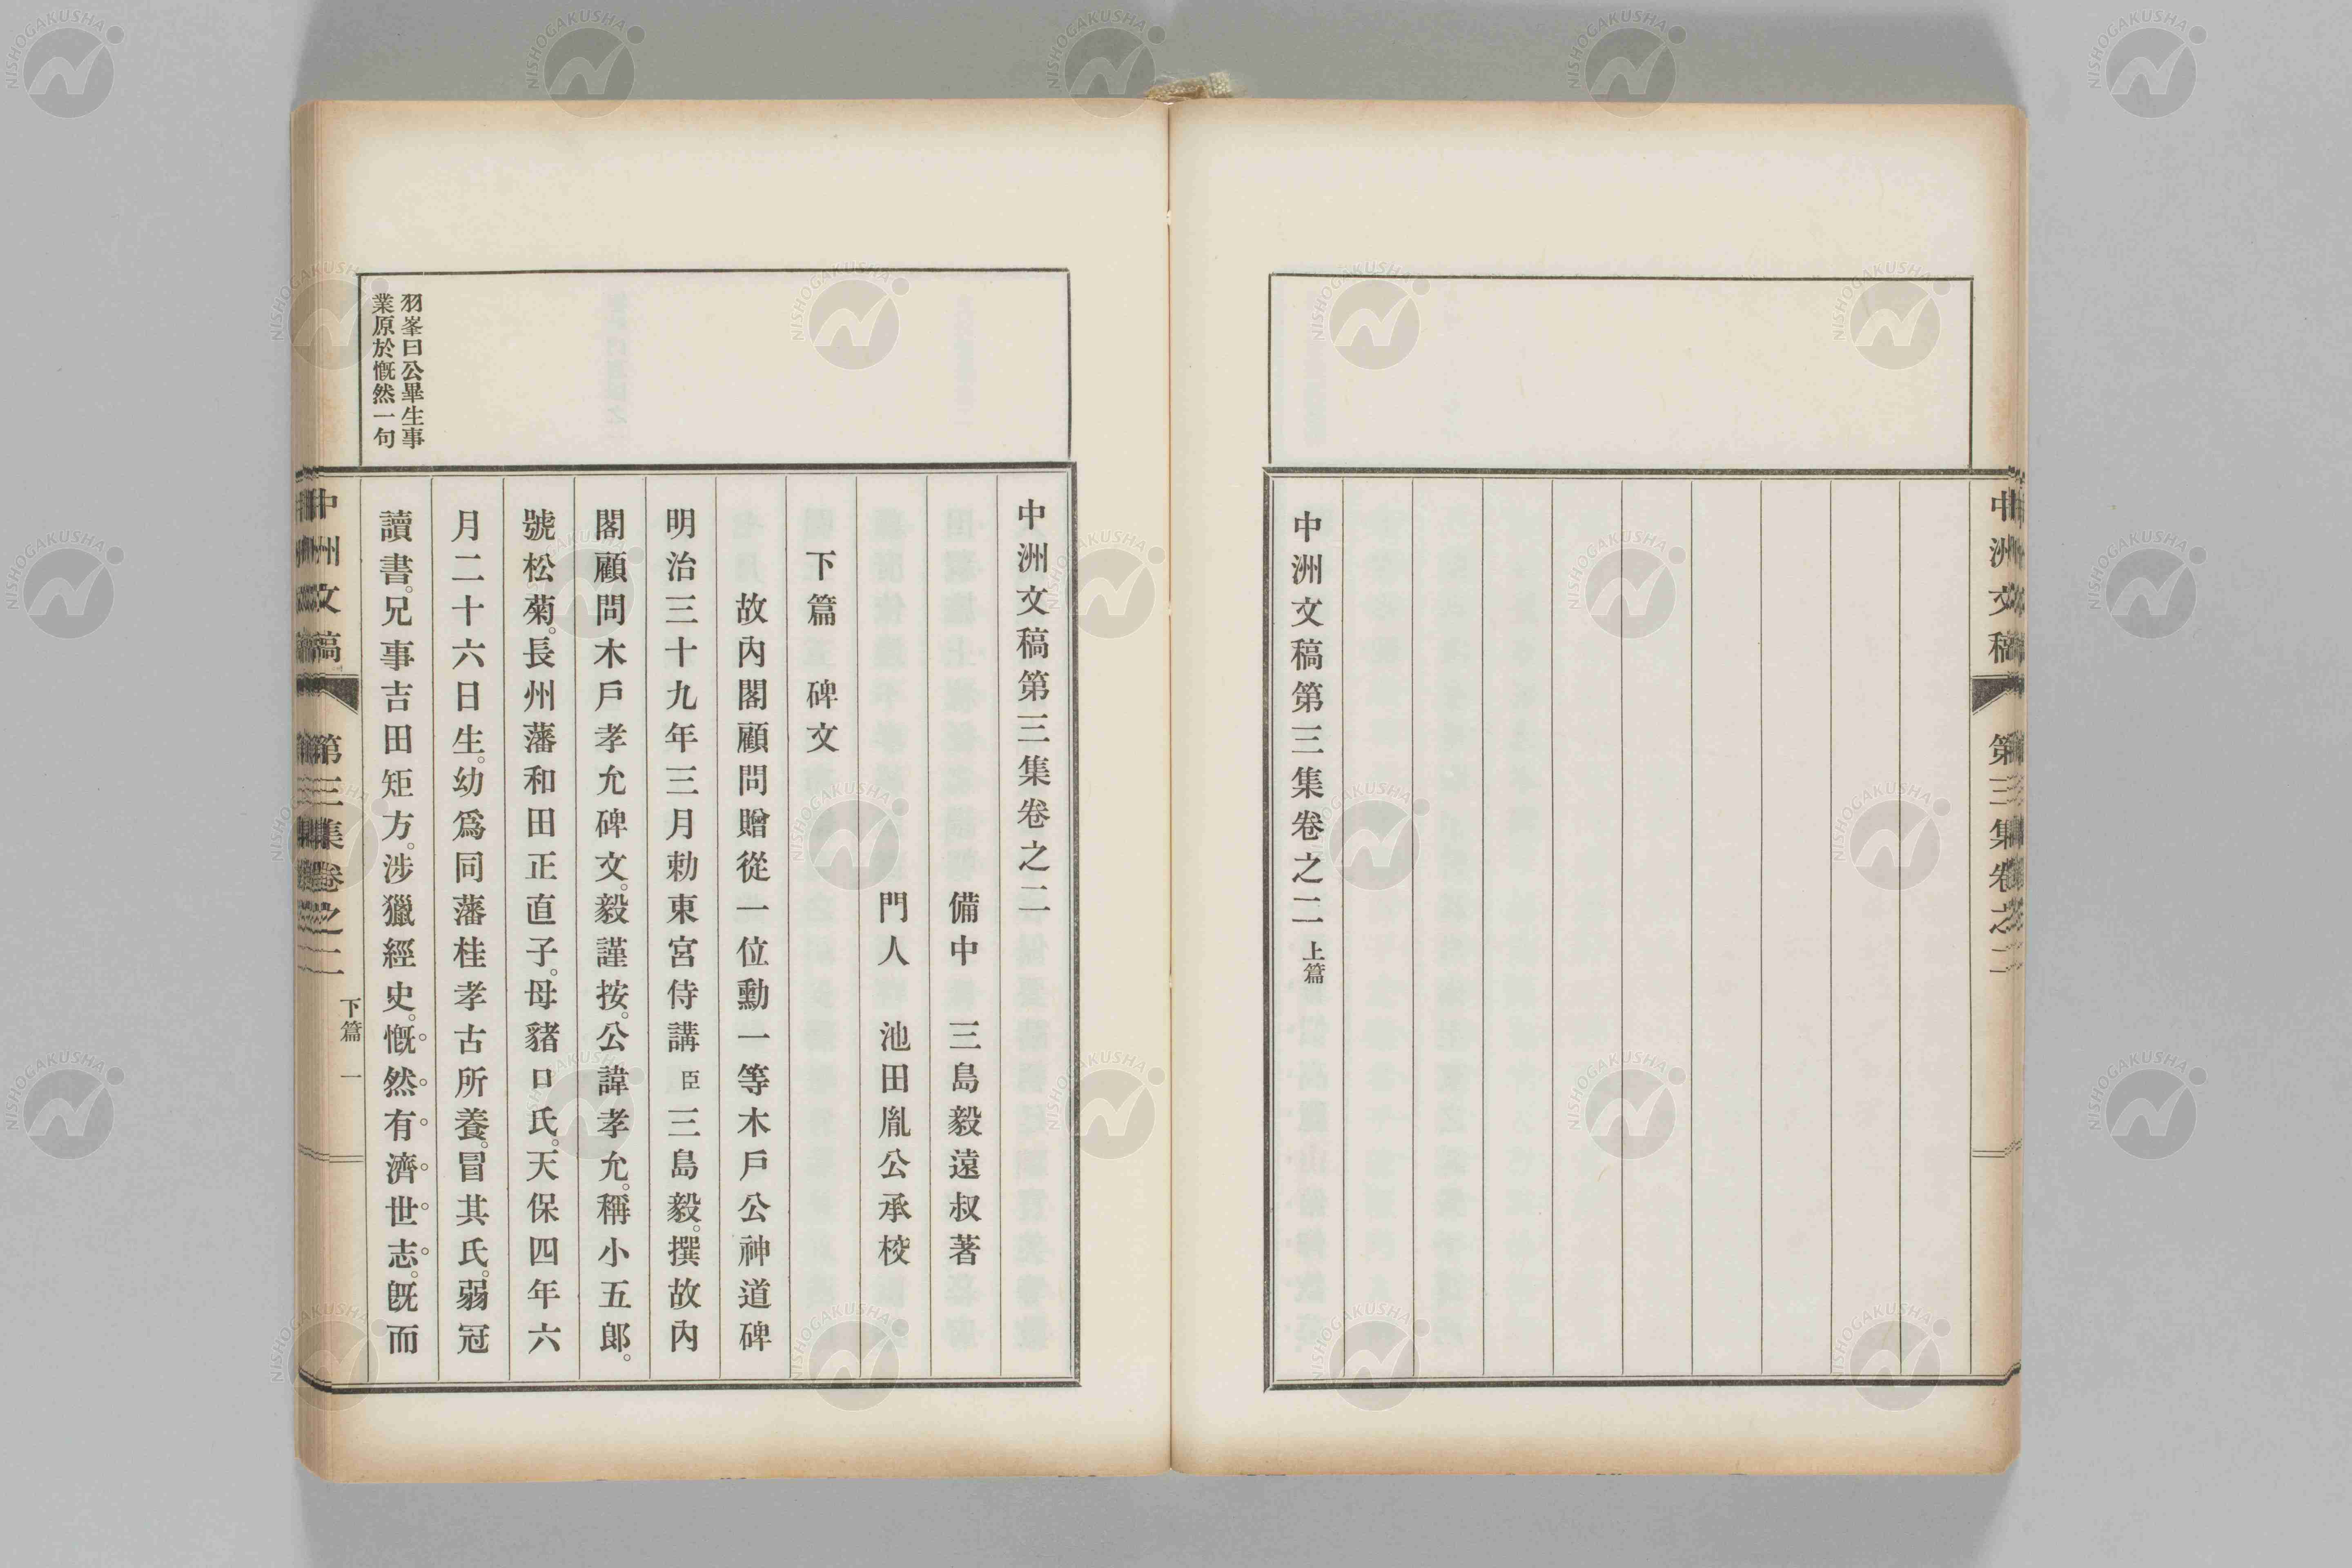 中洲文稿 第三集卷之二
中洲文稿第三集卷之二 上篇
羽峯曰公畢生事
業原於慨然一句
中洲文稿第三集卷之二
備中 三島毅遠叔著
門人 池田胤公承校
下篇 碑文
故內閣顧問贈從一位勳一等木戶公神道碑
明治三十九年三月勅東宮侍講臣三島毅。撰故內
閣顧問木戶孝允碑文。毅謹按。公諱孝允。稱小五郎。
號松菊。長州藩和田正直子。母豬口氏。天保四年六
月二十六日生。幼爲同藩桂孝古所養。冒其氏。弱冠
讀書。兄事吉田矩方。涉獵經史。慨然有濟世志。旣而
中洲文稿 第三集卷之二 下篇 一
NISHOGAKUSHA